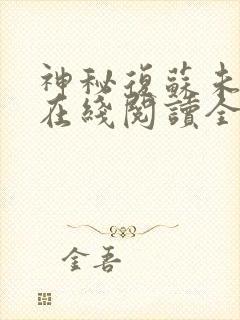 神秘復蘇未
在綫閱讀全
金吾